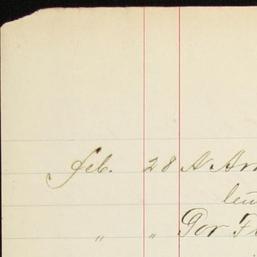 Feb. 28 A Ar
leu
" " Gor F